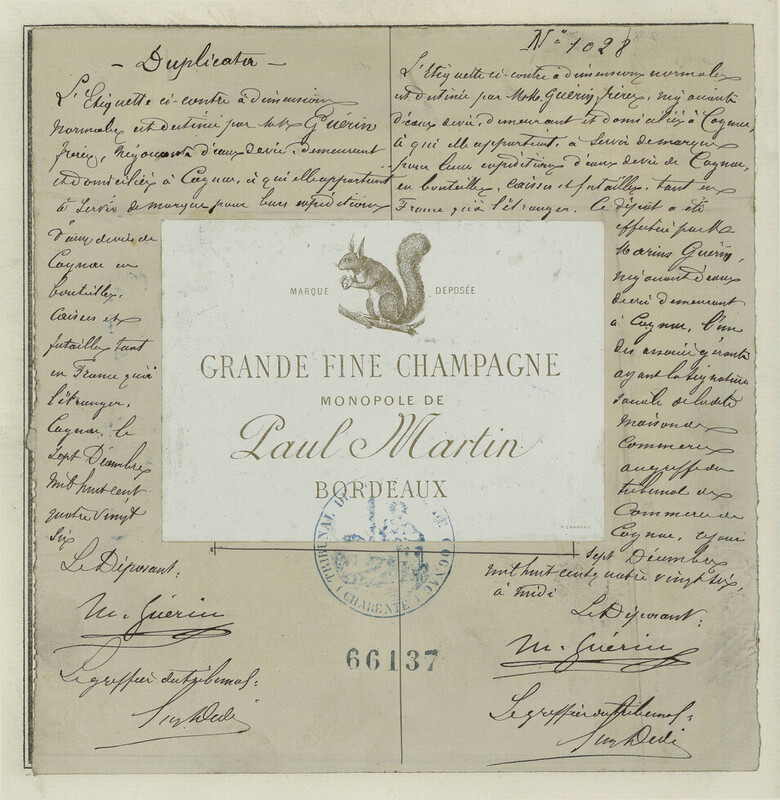 - Duplicata -
L'Etiquette ci-contre à dimensions
normales est destinée par M.M. Guérin
frères, négociants d'eaux de vie, demeurant
et domiciliés à Cognac, à qui elle appartient
à servir de marque pour leurs expéditions
d'eaux de vie de
Cognac en
bouteilles,
caisses et
futailles tant
en France qu'à
l'étranger.
Cognac, le
sept Décembre
mil huit cent
quatre vingt
six
Le Déposant:
M. Guérin
Le greffier du tribunal:
N° 1028
L'Etiquette ci-contre à dimensions normales
est destinée par M.M. Guérin frères, négociants
d'eaux de vie, demeurant et domiciliés à Cognac,
à qui elle appartient, à servir de marque
pour leurs expéditions d'eaux de vie de Cognac,
en bouteilles, caisses et futailles, tant en
France qu'à l'étranger. Ce dépôt a été
effectué par M.
Marius Guérin,
négociant d'eaux
de vie demeurant
à Cognac, l'un
des associés gérants
ayant la signature
sociale de la dite
maison de
commerce
au greffe du
tribunal de
Commerce de
Cognac, ce jour
sept Décembre
mil huit cent quatre vingt six,
à midi
Le Déposant:
M. Guérin
Le greffier du tribunal:
MARQUE DÉPOSÉE
GRANDE FINE CHAMPAGNE
MONOPOLE DE
Paul Martin
BORDEAUX
TRIBUNAL DE COGNAC
(CHARENTE)
66137